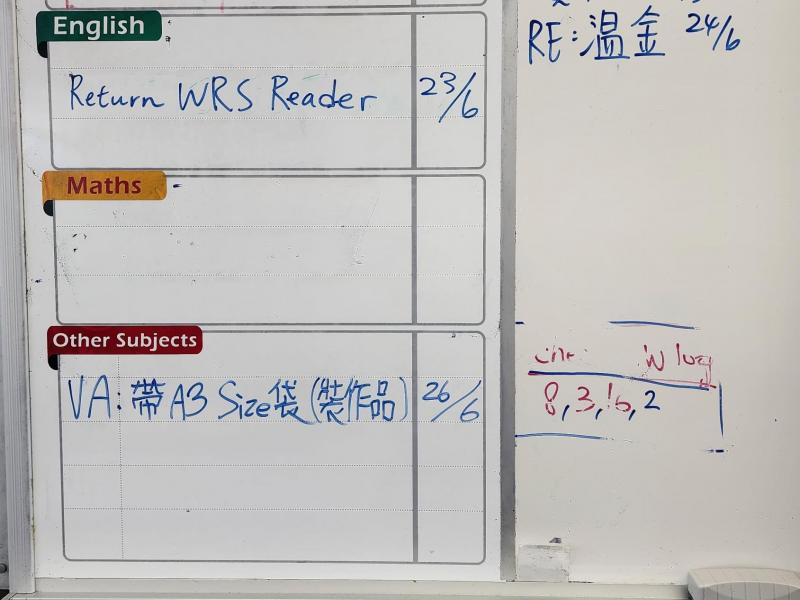 English
Return WRS Reader 23/6
Maths
Other Subjects
VA: 帶 A3 Size 袋 (裝作品) 26/6
RE: 溫金 24/6
8, 3, 16, 2